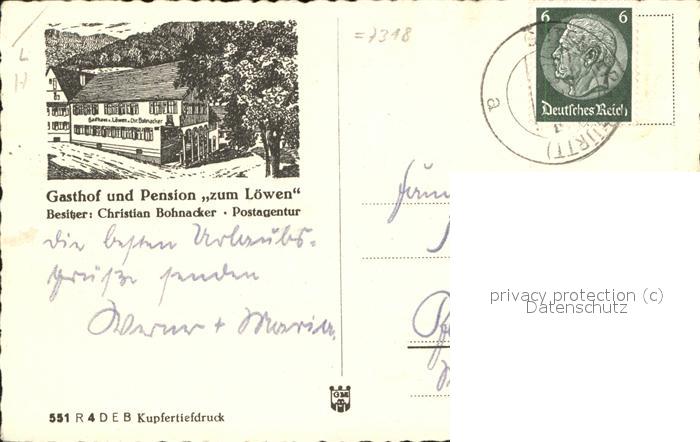 =7318
L
H
6 6
Deutsches Reich
a
(WÜRTT)
Gasthaus z. Löwen v. Chr. Bohnacker
Gasthof und Pension „zum Löwen"
Besitzer: Christian Bohnacker · Postagentur
Die besten Urlaubs-
grüße senden
Werner + Maria
privacy protection (c)
Datenschutz
GM
551 R 4 D E B Kupfertiefdruck